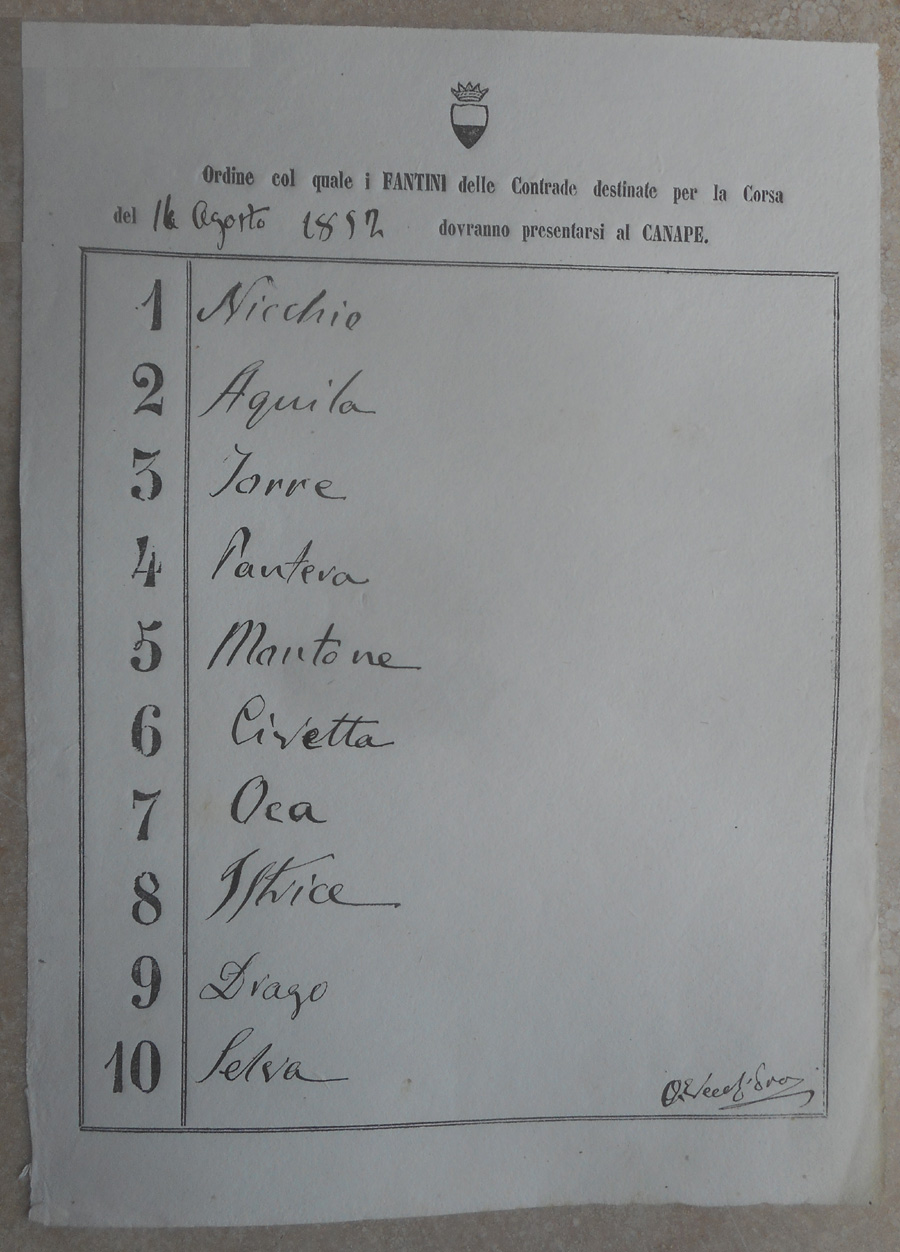 Ordine col quale i FANTINI delle Contrade destinate per la Corsa
del 16 Agosto 1892 dovranno presentarsi al CANAPE.
1 Nicchio
2 Aquila
3 Torre
4 Pantera
5 Montone
6 Civetta
7 Oca
8 Istrice
9 Drago
10 Selva